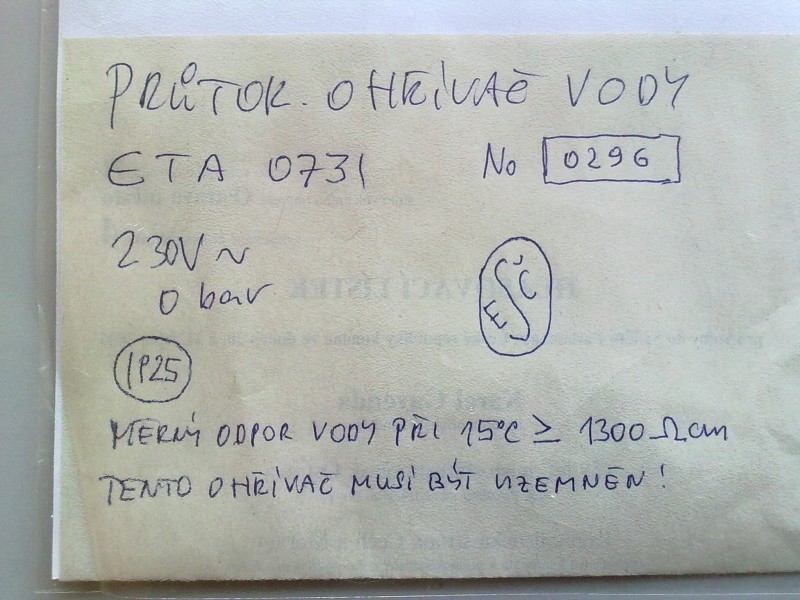 PRŮTOK. OHŘÍVAČ VODY
ETA 0731 No 0296
230V ~
0 bar
ESČ
IP25
MĚRNÝ ODPOR VODY PŘI 15°C ≥ 1300 Ωcm
TENTO OHŘÍVAČ MUSÍ BÝT UZEMNĚN!